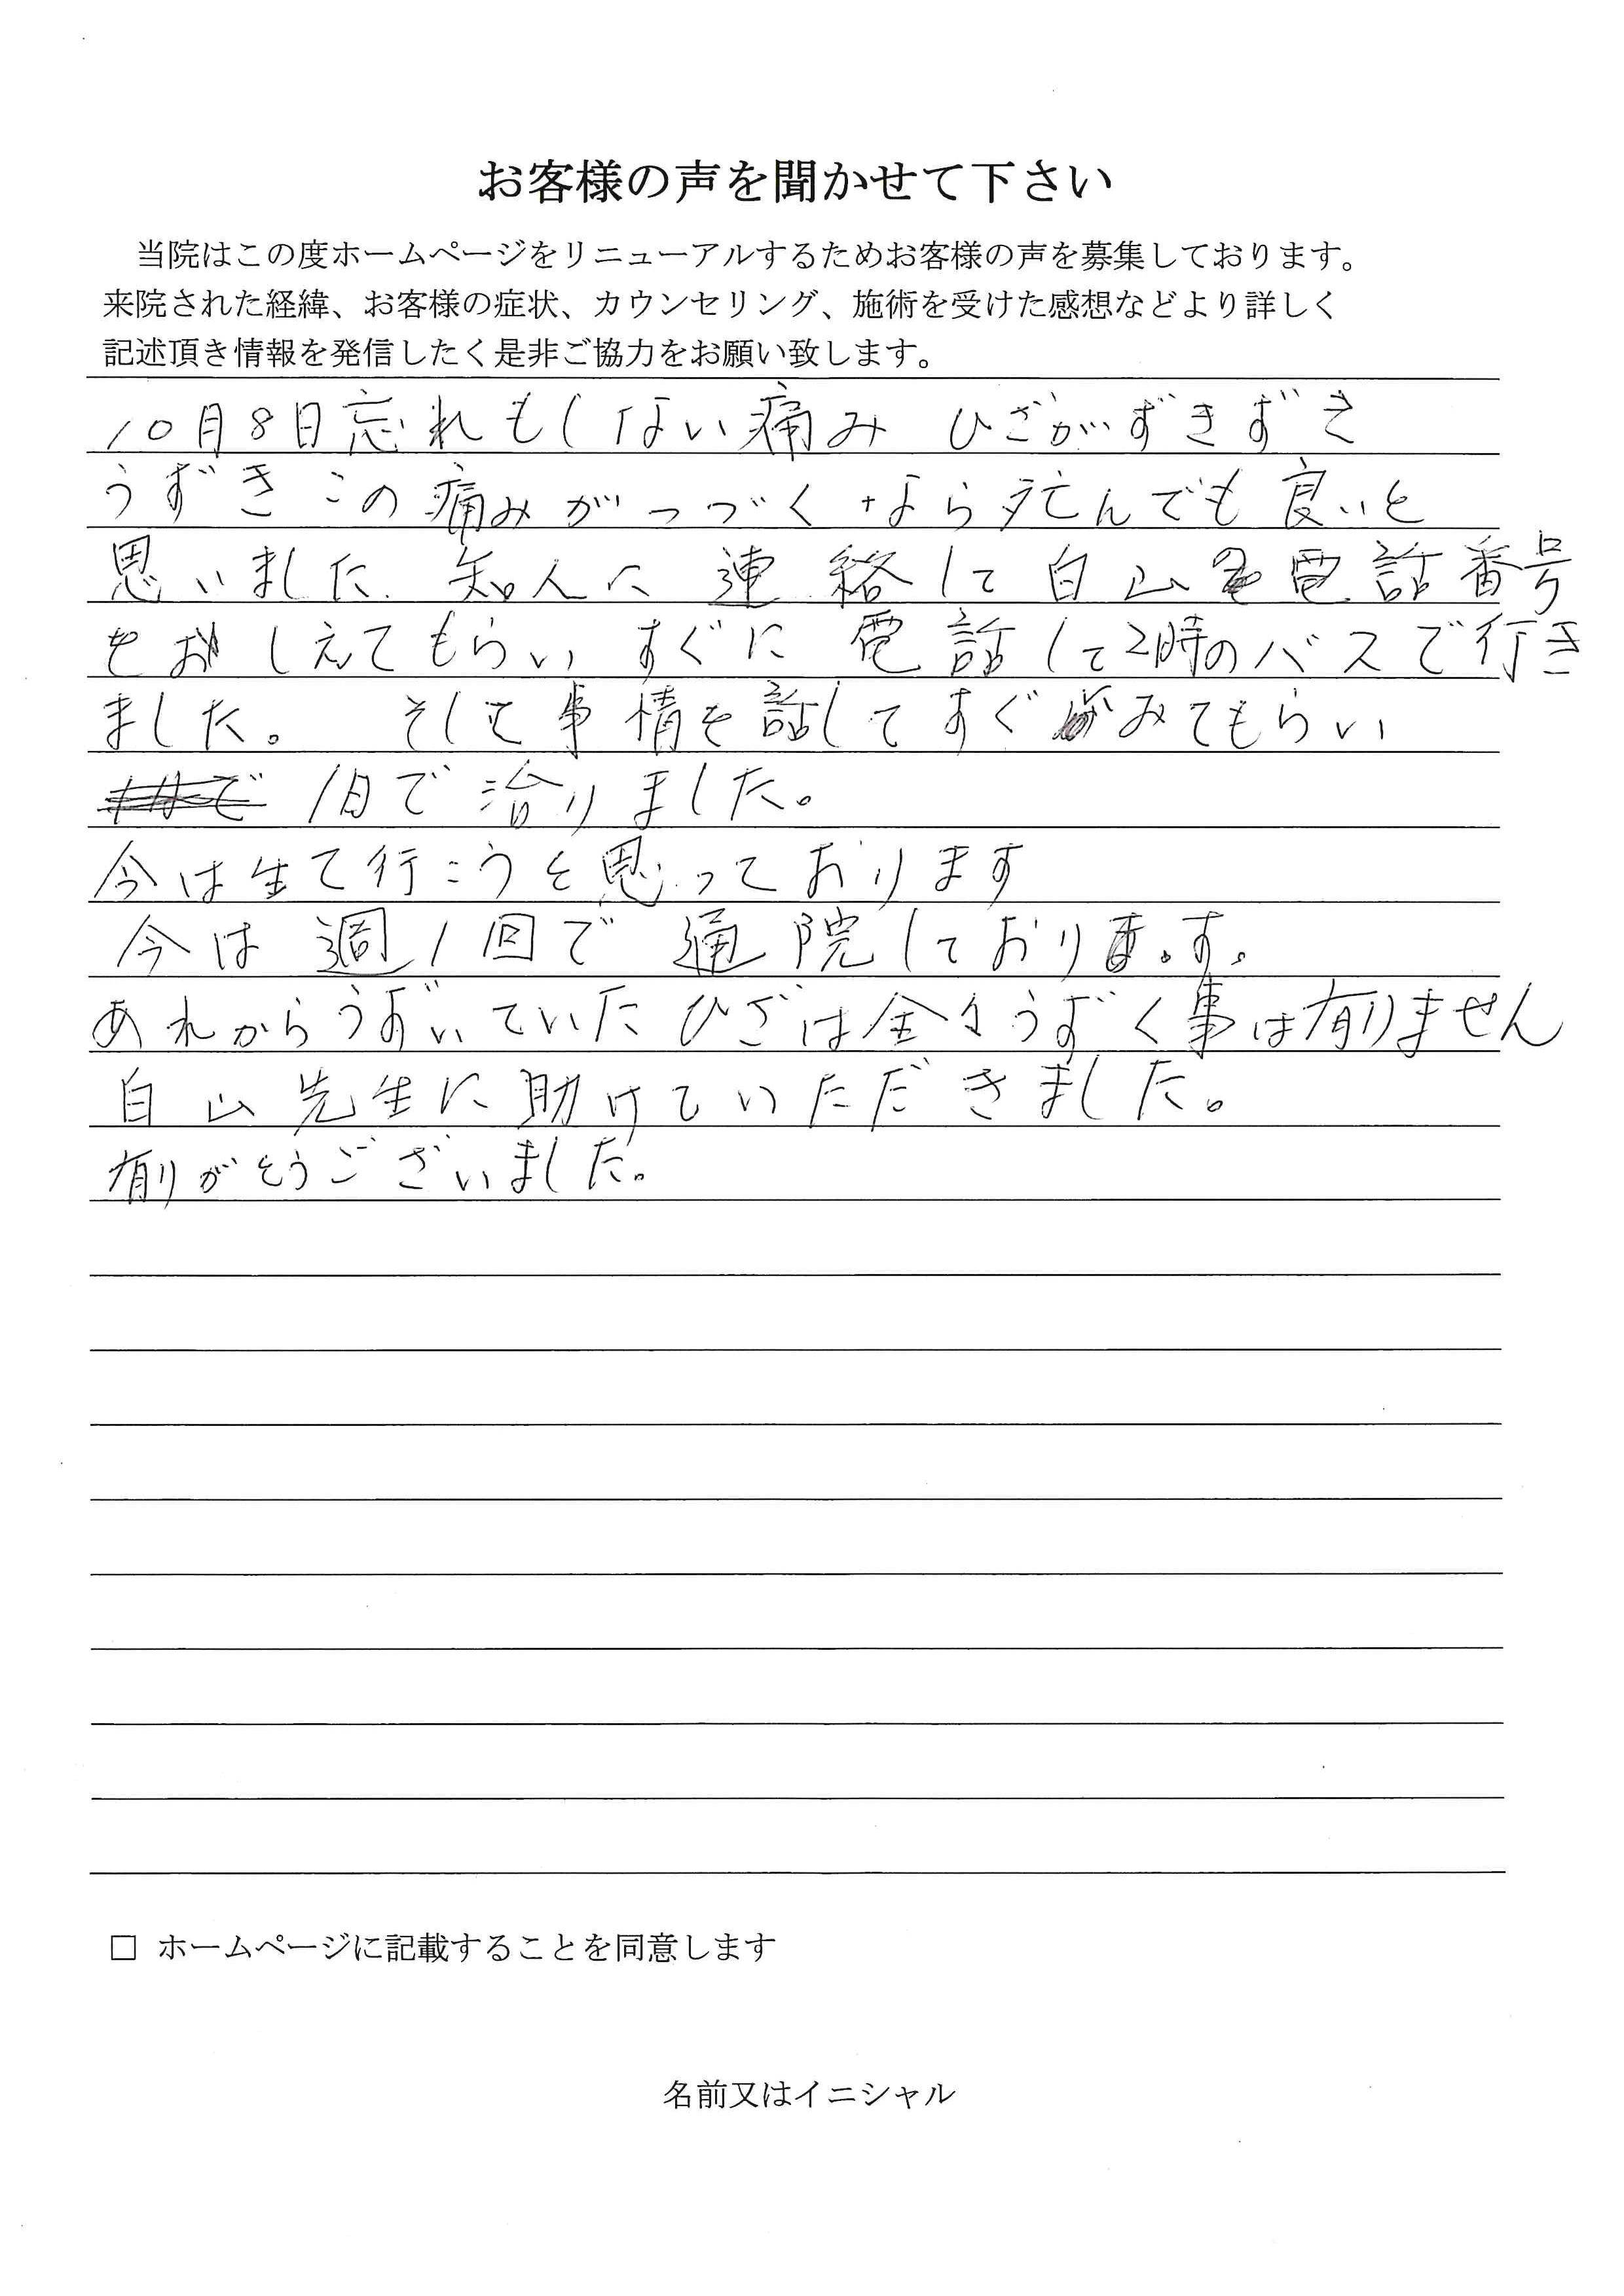 お客様の声を聞かせて下さい
当院はこの度ホームページをリニューアルするためお客様の声を募集しております。
来院された経緯、お客様の症状、カウンセリング、施術を受けた感想などより詳しく
記述頂き情報を発信したく是非ご協力をお願い致します。
10月8日忘れもしない痛み ひざがずきずき
うずき この痛みがつづくなら死んでも良いと
思いました. 知人に連絡して白山電話番号
をおしえてもらい すぐに電話して2時のバスで行き
ました。 そして事情を話してすぐみてもらい
1日で治りました。
今は生て行こうと思っております
今は週1回で通院しております。
あれからうずいていたひざは全々うずく事は有りません
白山先生に助けていただきました。
有りがとうございました。
□ ホームページに記載することを同意します
名前又はイニシャル